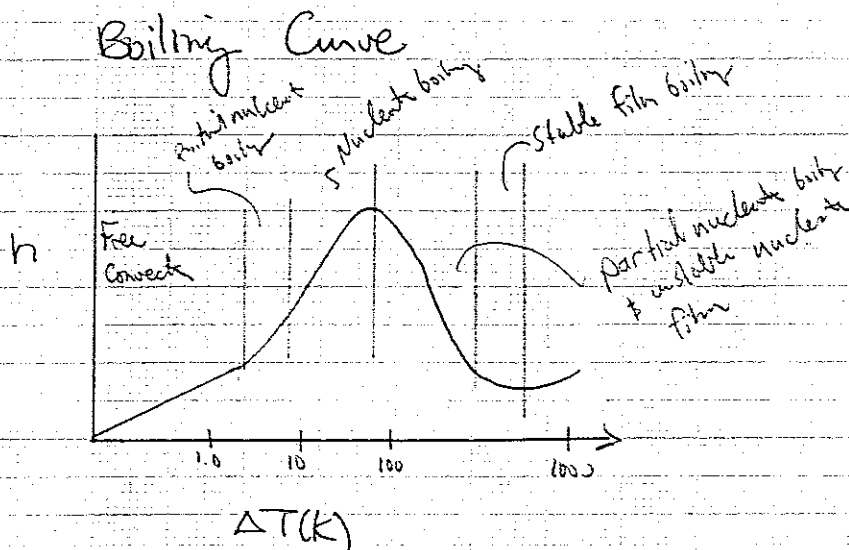 Boiling Curve
Partial nucleate
boiling
Nucleate boiling
Stable film boiling
h
Free
Convect
partial nucleate boiling
& unstable nucleate
film
1.0 10 100 1000
ΔT(K)